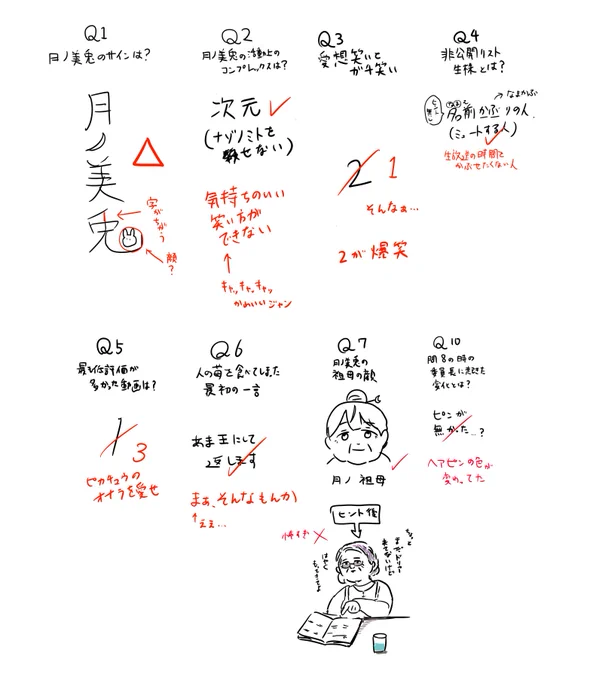 Q1
月ノ美兎のサインは?
月ノ美兎
字がちがう
顔?
Q2
月ノ美兎の活動上の
コンプレックスは?
次元
(ナゾノミトを
載せない)
気持ちのいい
笑い方が
できない
キャッキャッキャッ
かわいいジャン
Q3
愛想笑いと
ガチ笑い
2 1
そんなぁ…
2が爆笑
Q4
非公開リスト
生株とは?
なまかぶ
名前かぶりの人
(ミュートする人)
生放送の時間を
かぶせたくない人
Q5
最も低評価が
多かった動画は?
1
3
ピカチュウの
オナラを愛せ
Q6
人の苺を食べてしまった
最初の一言
あま王にして
返します
まぁ、そんなもんか
ええ…
Q7
月ノ美兎の
祖母の顔
月ノ 祖母
ヒント後
Q10
問8の時の
委員長に起きた
変化とは?
ピンが
無かった…?
ヘアピンの色が
変わってた